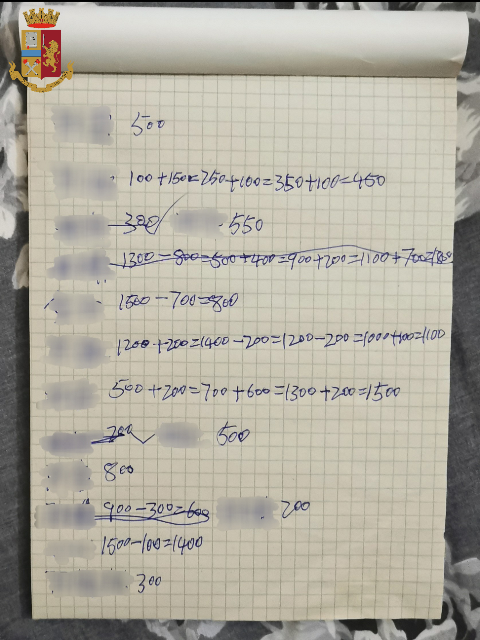 500
100+150=250+100=350+100=450
300 550
1300-800=500+400=900+200=1100+700=1800
1500-700=800
1200+200=1400-200=1200-200=1000+100=1100
500+200=700+600=1300+200=1500
700 500
800
900-300=600 200
1500-100=1400
300